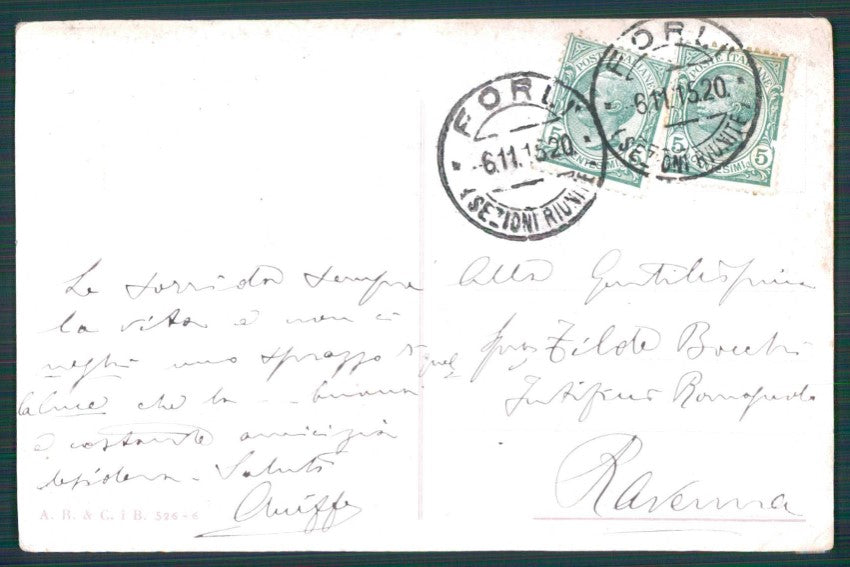 FORLI
6.11.15.20
(SEZIONI RIUNITE)
POSTE ITALIANE
5 CENTESIMI 5
FORLI
6.11.15.20.
(SEZIONI RIUNITE)
POSTE ITALIANE
5 CENTESIMI 5
Le sorrida sempre
la vita e non ci
neghi uno sprazzo di quel
la luce che la buona
e costante amicizia
desidera - Saluti
Alla Gentilissima
Tilde Bocchi
Ravenna
A. R. & C. i B. 526-6